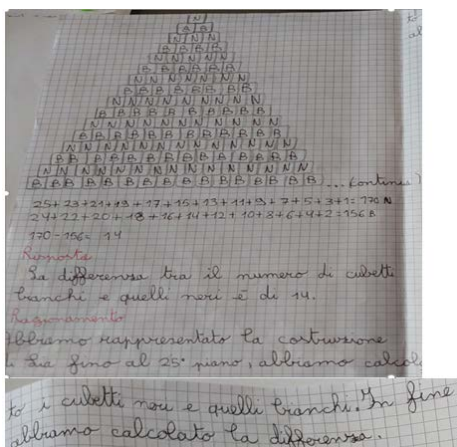 N
B B
N N N
B B B B
N N N N N
B B B B B B
N N N N N N N
B B B B B B B B
N N N N N N N N N
B B B B B B B B B B
N N N N N N N N N N N
B B B B B B B B B B B B
N N N N N N N N N N N N N
B B B B B B B B B B B B B B
N N N N N N N N N N N N N N N
B B B B B B B B B B B B B B B B ... continua)
25+23+21+19+17+15+13+11+9+7+5+3+1= 170 N
24+22+20+18+16+14+12+10+8+6+4+2=156 B
170-156= 14
Risposta
La differenza tra il numero di cubetti
bianchi e quelli neri è di 14.
Ragionamento
Abbiamo rappresentato la costruzione
di Lia fino al 25° piano, abbiamo calcola
to i cubetti neri e quelli bianchi. In fine
abbiamo calcolato la differenza.